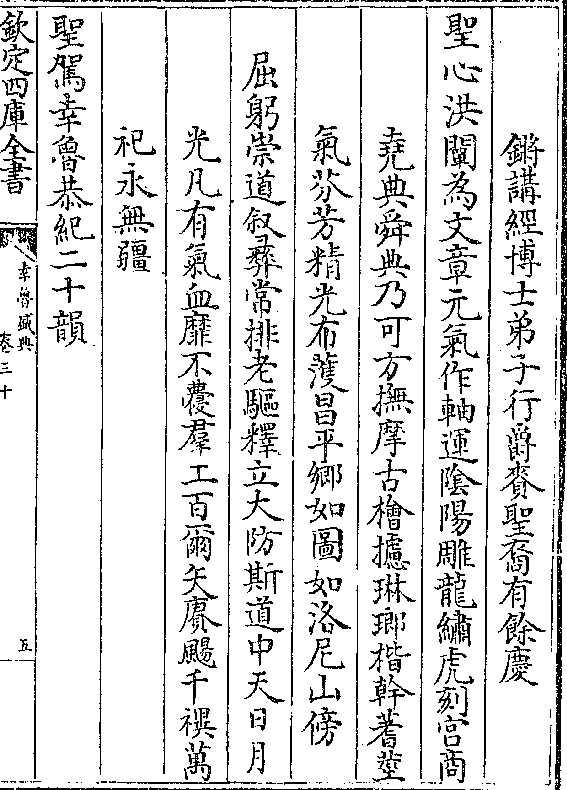 鏘講經博士弟子行爵賚聖裔有餘慶
聖心洪闡為文章元氣作軸運陰陽雕龍繡虎刻宮商
堯典舜典乃可方撫摩古檜攄琳瑯楷幹蓍莖
氣芬芳精光布濩昌平鄉如圖如洛尼山傍
屈躬崇道叙彞常排老驅釋立大防斯道中天日月
光凡有氣血靡不覆羣工百爾矢賡颺千禩萬
祀永無疆
聖駕幸魯恭紀二十韻
欽定四庫全書
幸魯盛典
卷三十
五